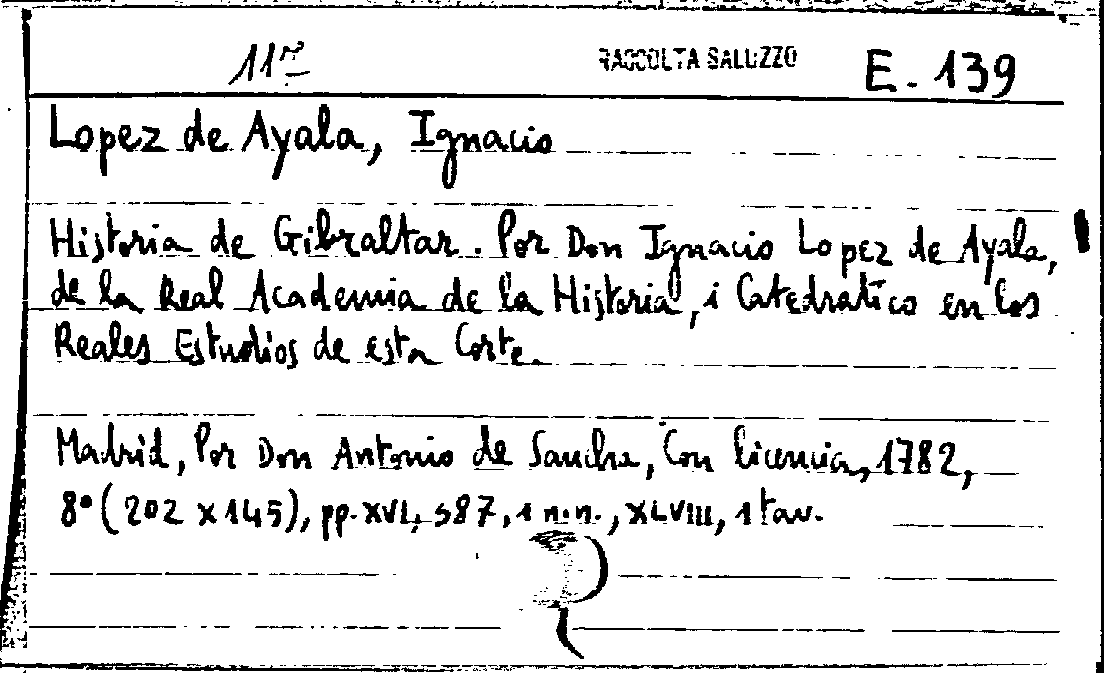 RACCOLTA SALUZZO E. 139
Lopez de Ayala, Ignacio
Historia de Gibraltar. Por Don Ignacio Lopez de Ayala,
de la Real Academia de la Historia, i Catedratico en los
Reales Estudios de esta Corte.
Madrid, Por Don Antonio de Sancha, Con licencia, 1782,
8° (202 x 145), pp. XVI, 387, 1 n.n., XLVIII, 1 tav.